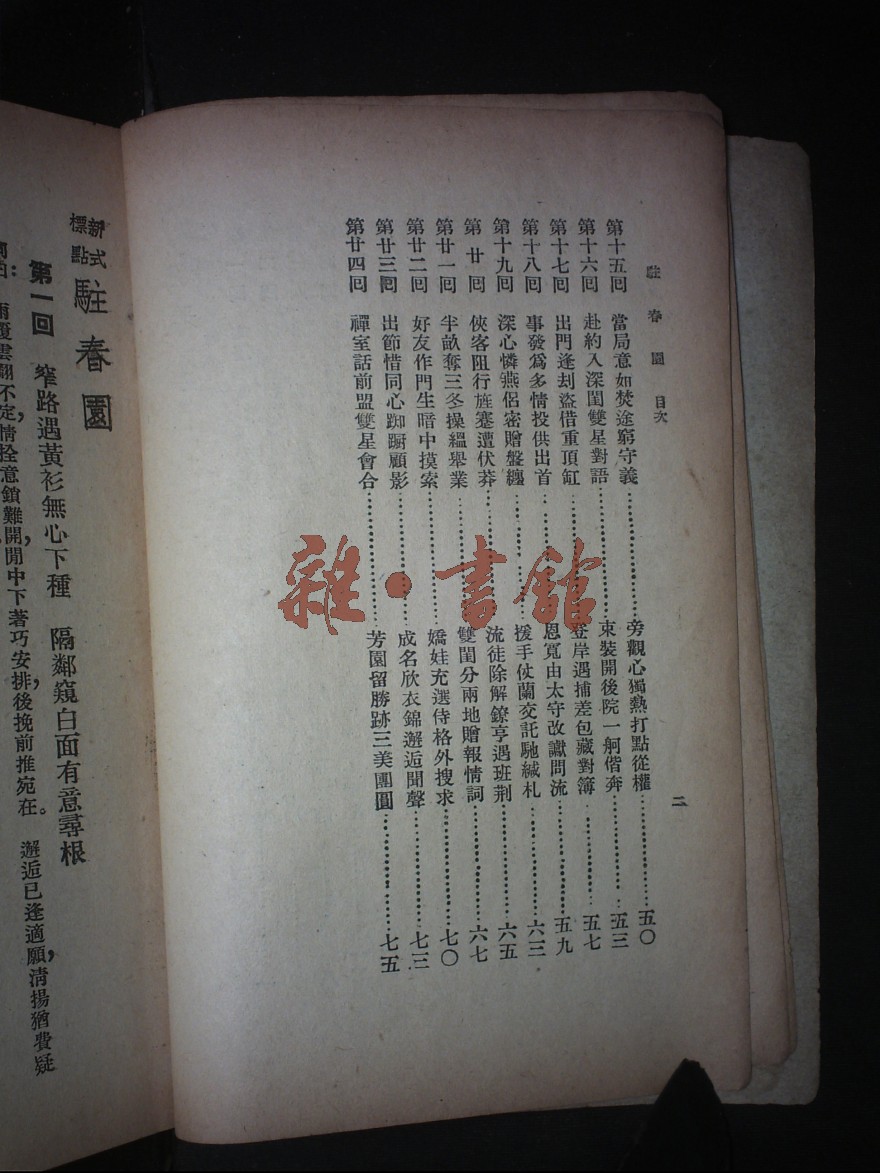 駐春園 目次
二
第十五回 當局意如焚途窮守義……旁觀心獨熱打點從權……五〇
第十六回 赴約入深閨雙星對語……束裝開後院一舸偕奔……五三
第十七回 出門逢刦盜借重頂缸……登岸遇捕差包藏對簿……五七
第十八回 事發爲多情投供出首……恩寬由太守改讞問流……五九
第十九回 深心憐燕侶密贈盤纏……援手仗蘭交託馳緘札……六三
第廿回 俠客阻行旌蹇遭伏莽……流徒除解鐐亨遇班荆……六五
第廿一回 半畝奪三冬操縕舉業……雙閨分兩地贈報情詞……六七
第廿二回 好友作門生暗中摸索……嬌娃充選侍格外搜求……七〇
第廿三回 出節惜同心踟蹰顧影……成名欣衣錦邂逅聞聲……七三
第廿四回 禪室話前盟雙星會合……芳園留勝跡三美團圓……七五
新式標點 駐春園
第一回 窄路遇黃衫無心下種 隔鄰窺白面有意尋根
雨覆雲翻不定，情拴意鎖難開，閒中下著巧安排，後挽前推宛在。 邂逅已逢適願，清揚猶費疑
雜·書館